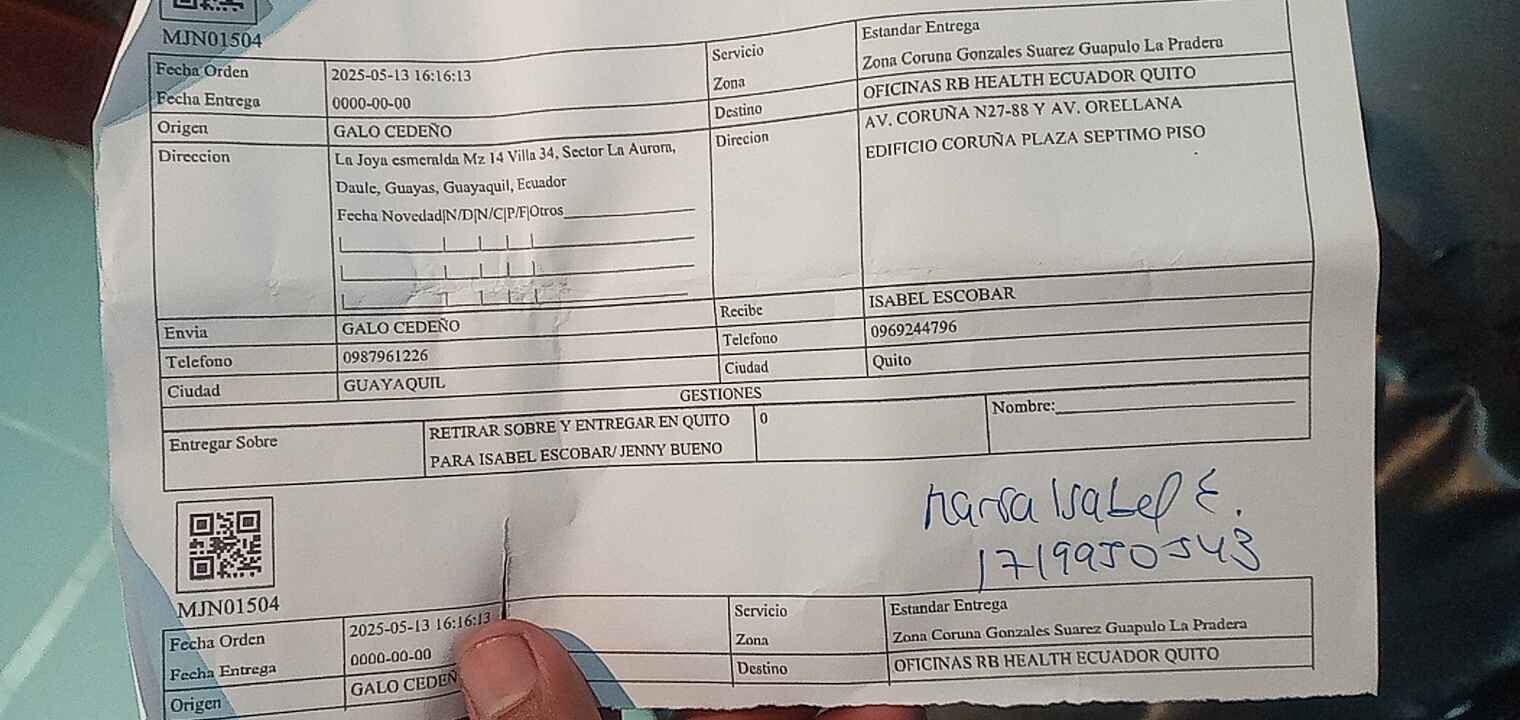 MJN01504
Fecha Orden 2025-05-13 16:16:13 Servicio Estandar Entrega
Fecha Entrega 0000-00-00 Zona Zona Coruna Gonzales Suarez Guapulo La Pradera
Origen GALO CEDEÑO Destino OFICINAS RB HEALTH ECUADOR QUITO
Direccion La Joya esmeralda Mz 14 Villa 34, Sector La Aurora, Direcion AV. CORUÑA N27-88 Y AV. ORELLANA
Daule, Guayas, Guayaquil, Ecuador EDIFICIO CORUÑA PLAZA SEPTIMO PISO
Fecha Novedad|N/D|N/C|P/F|Otros
Envia GALO CEDEÑO Recibe ISABEL ESCOBAR
Telefono 0987961226 Telefono 0969244796
Ciudad GUAYAQUIL Ciudad Quito
GESTIONES
Entregar Sobre RETIRAR SOBRE Y ENTREGAR EN QUITO 0 Nombre:
PARA ISABEL ESCOBAR/ JENNY BUENO
Maria Isabel E.
1719950543
MJN01504
Fecha Orden 2025-05-13 16:16:13 Servicio Estandar Entrega
Fecha Entrega 0000-00-00 Zona Zona Coruna Gonzales Suarez Guapulo La Pradera
Origen GALO CEDEÑ Destino OFICINAS RB HEALTH ECUADOR QUITO